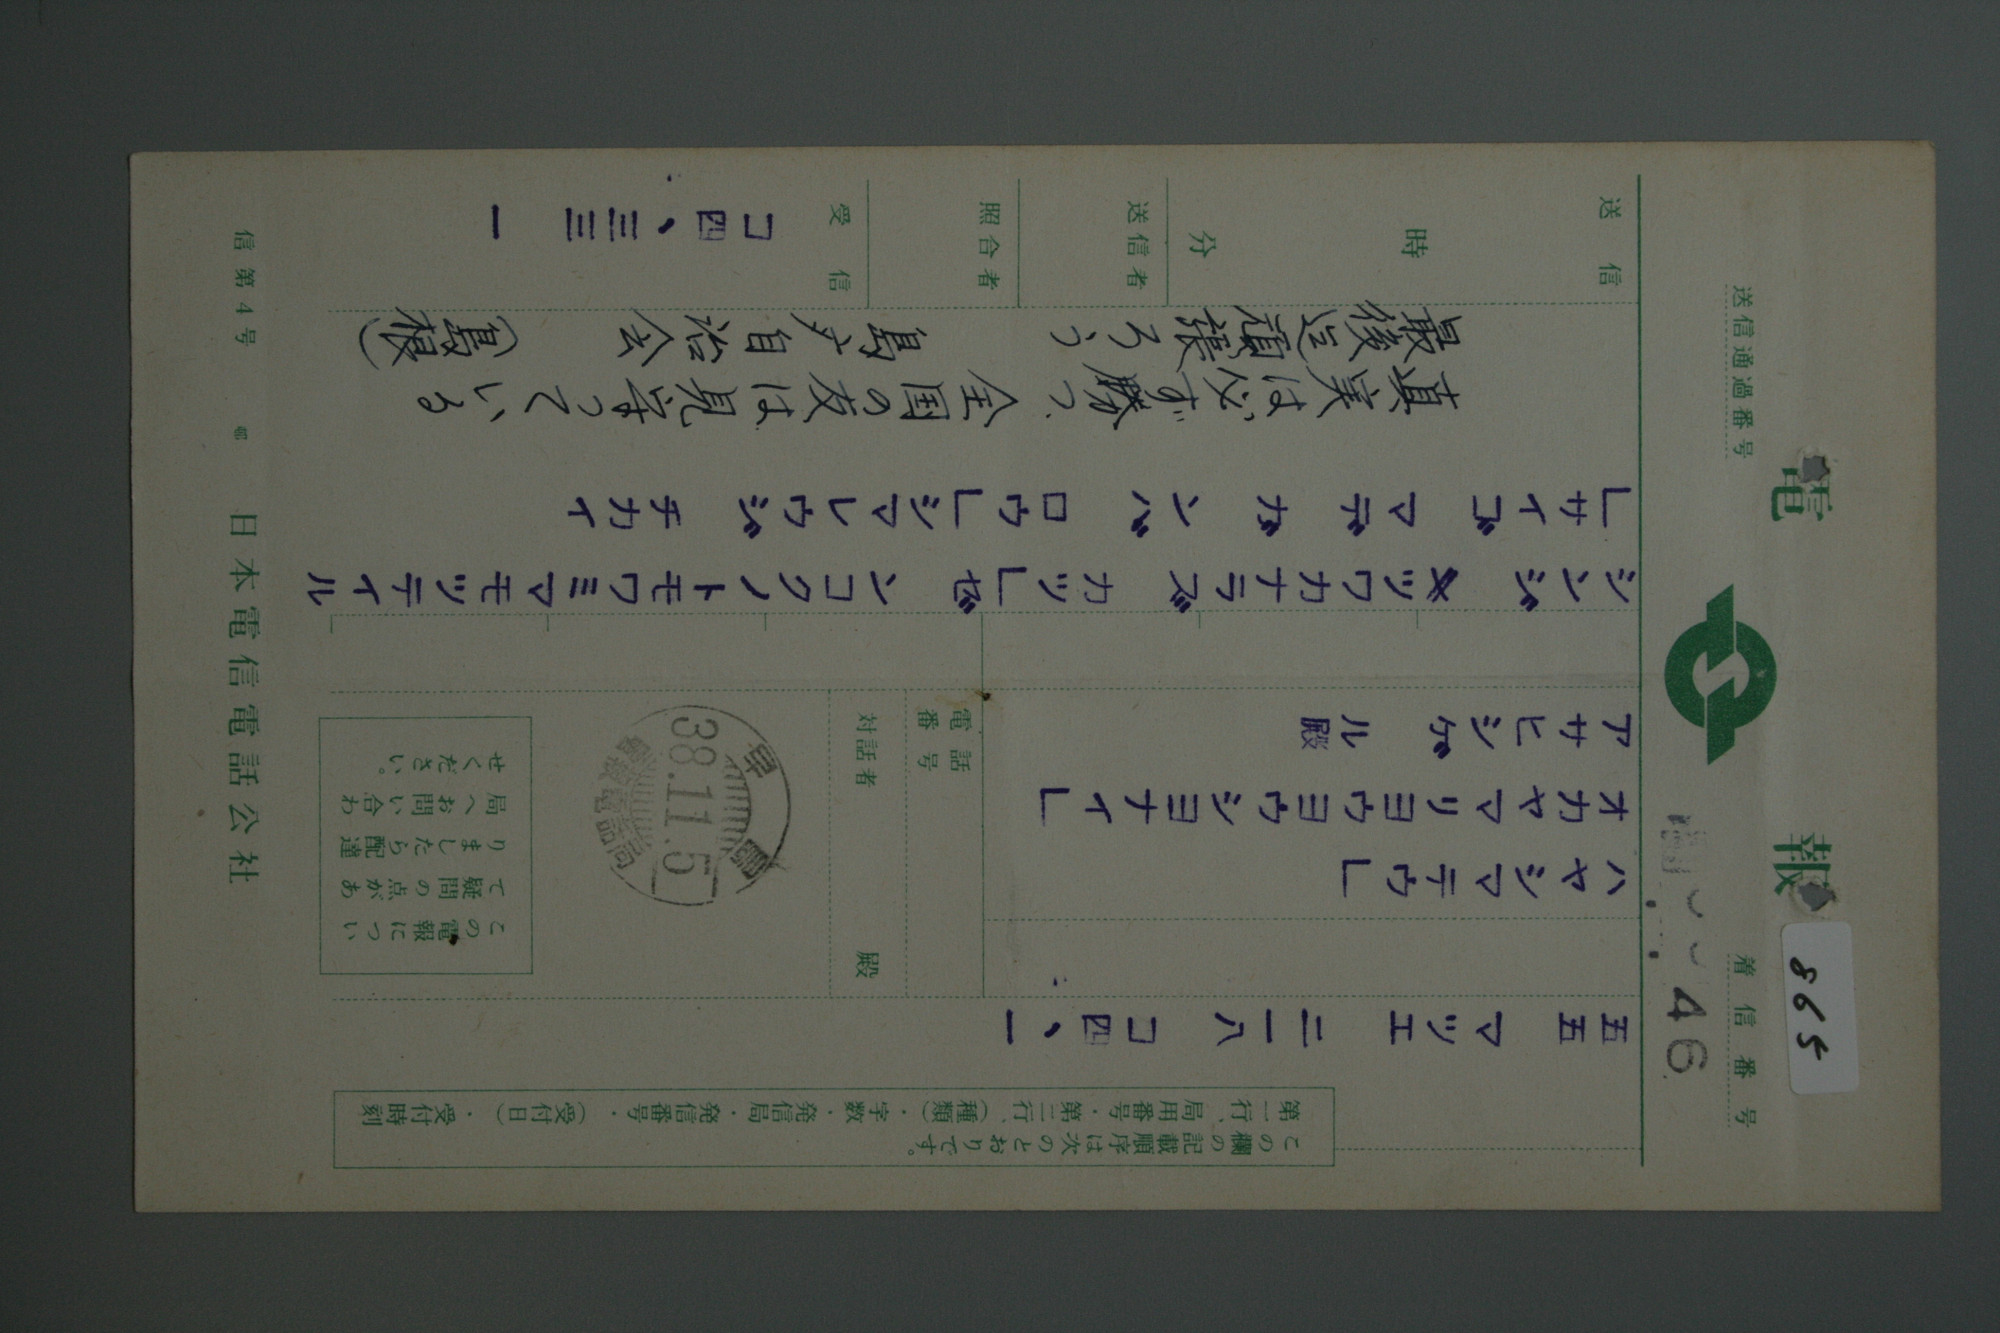 電報
送信通過番号
着信番号 46
865
この欄の記載順序は次のとおりです。
第一行、局用番号・第二行、(種類)・字数・発信局・発信番号・(受付日)・受付時刻
五五 マツエ 二一八 コ四、一
ハヤシマテウ」
オカヤマリヨウヨウシヨナイ」
アサヒシゲル殿
電話番号
対話者 殿
38.11.5
電話局
この電報につい
て疑問の点があ
りましたら配達
局へお問い合わ
せください。
シンジツワカナラズカツ」ゼンコクノトモワミマモツテイル
」サイゴマデガンバロウ」シマレウジチカイ
真実は必ず勝つ、全国の友は見守っている
最後迄頑張ろう 島メ自治会 (島根)
送信 時 分
送信者
照合者
受信 コ四、三三 一
信第4号 日本電信電話公社